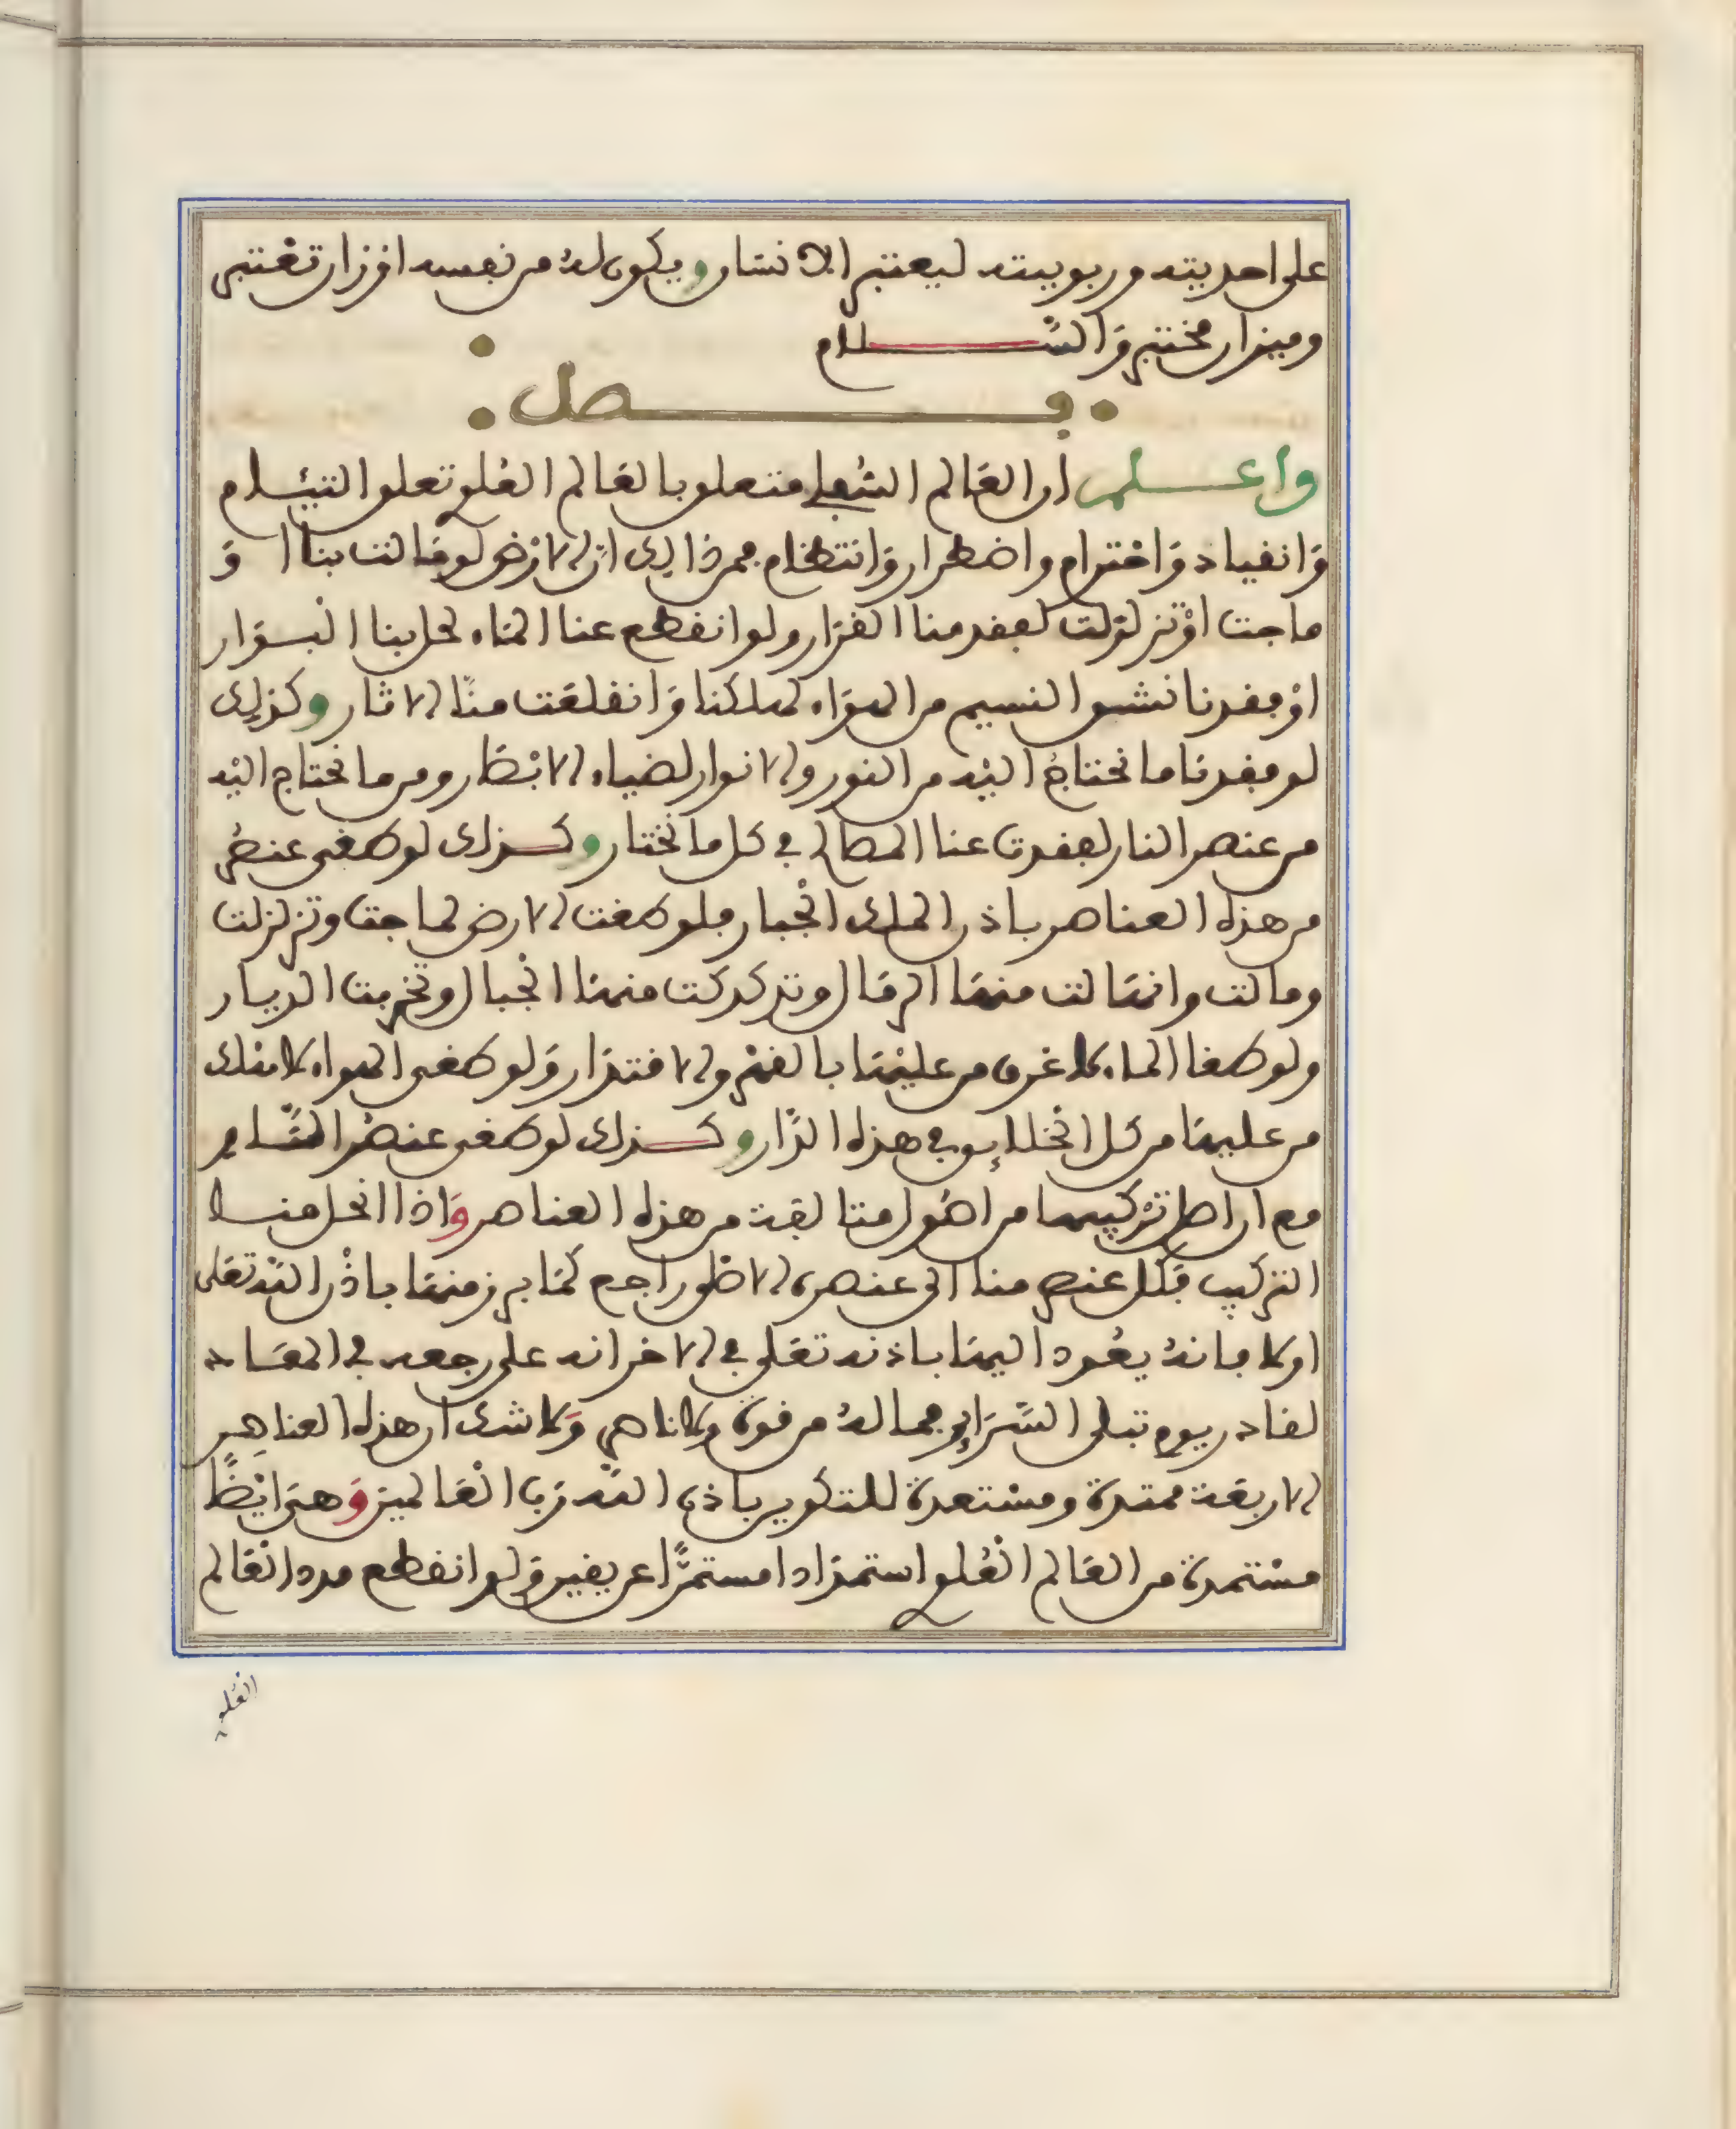 على احديته وربوبيته ليعتبر الانسان ويكون له من نفسه اقرار تعتبر
وميزان مختبر والسلام
فصل
واعلم ان العالم السفلي متعلق بالعالم العلوي تعلق التيام
وانقياد واحترام واضطرار وانتظام فمن ذالك ان الارض لو مالت بنا او
ماجت او تزلزلت لعقد منا القرار ولو انقطع عنا الماء لحل بنا البوار
او فقدنا نشق النسيم من الهواء لهلكنا وانقلعت منا الاثار وكذلك
لو فقدنا ما نحتاج اليه من النور والانوار لضياء الابصار ومن ما نحتاج اليه
من عنصر النار لفقدت عنا المصالح في كل ما نختار وكذلك لو طغى عنصر
من هذه العناصر باذن الملك الجبار فلو طغت الارض لماجت وتزلزلت
ومالت وانهالت منها الرمال وتدكدكت منها الجبال وتخربت الديار
ولو طغا الماء لاغرق من عليها بالقهر والاقتدار ولو طغى الهواء لاهلك
من عليها من كل الخلايق في هذه الدار وكذلك لو طغى عنصر النار
مع ان اصل تركيبها من اصول متالفة من هذه العناصر واذا انحل منا
التركيب فكل عنصر منا الى عنصره الاصلي راجع كما برز منها باذن الله تعلى
اولا فانه يعود اليها باذنه تعلى في الاخر انه على رجعه في المعاد
لقادر يوم تبلى السراير فما له من قوة ولا ناصر ولا شك ان هذه العناصر
الاربعة ممتدة ومستعدة للتكوير باذن الله رب العالمين وهي ايضا
مستمدة من العالم العلوي استمدادا مستمرا عن يقين ولو انقطع مدد العالم
العلوي